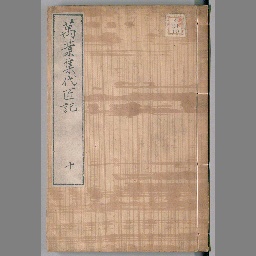 萬葉集代匠記
十